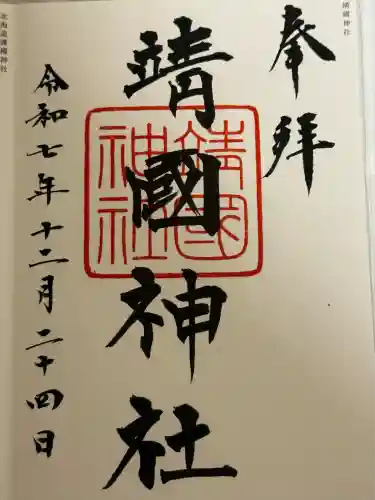 靖國神社
奉拝
靖國神社
靖國神社
令和七年十二月二十四日
北海道護國神社